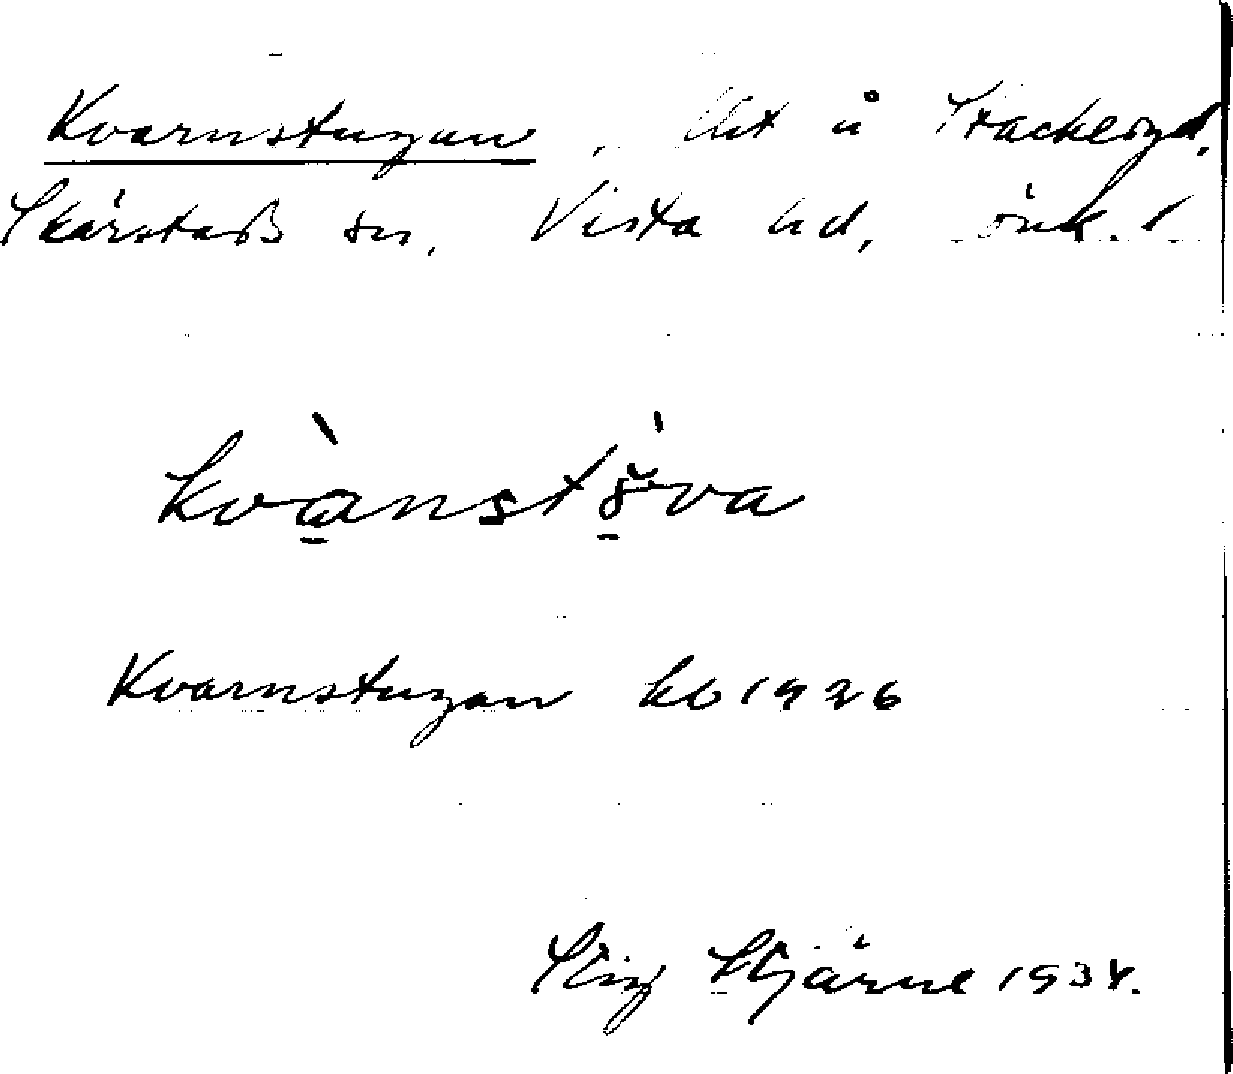 Kvarnstugan, lht å Stackeryd,
Skärstads sn, Vista hd, Jönk. l
kvànstŏ̀va
Kvarnstugan kb 1926
Stig Stjärne 1934.